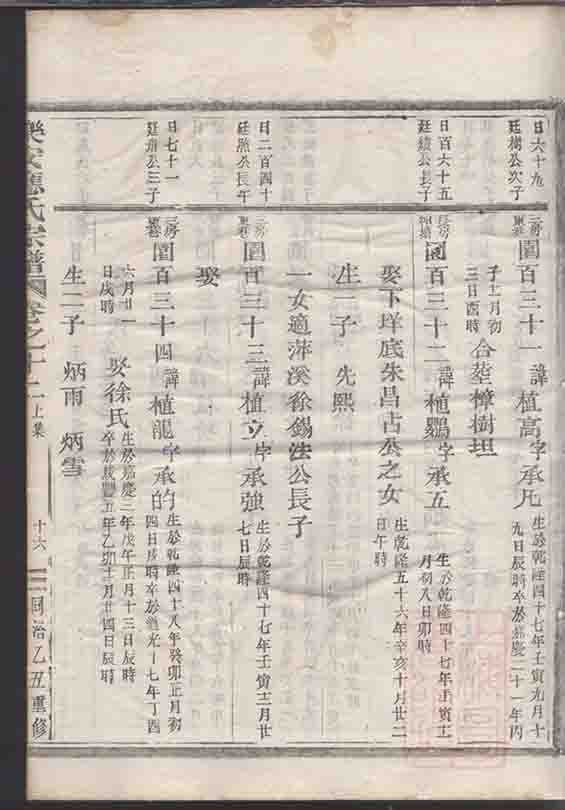 日六十九
廷樹公次子
三房
園百三十一諱植高字承凡
生於乾隆四十七年壬寅九月十
九日辰時卒於嘉慶二十一年丙
子十一月初
三日酉時
合塟樟樹坦
日百六十五
廷續公長子
園百三十二諱植鸚字承五
生於乾隆四十七年壬寅十二
月初八日卯時
娶下垟底朱昌古公之女
生乾隆五十六年辛亥十月廿二
日午時
生一子 先熙
一女適萍溪徐錫法公長子
日二百四十
廷照公長子
三房
園百三十三諱植立字承強
生於乾隆四十七年壬寅十二月廿
七日辰時
娶
日七十一
廷公三子
三房
園百三十四諱植龍字承的
生於乾隆四十八年癸卯正月初
四日戌時卒於道光十七年丁酉
六月廿一
日戌時
娶徐氏
生於嘉慶三年戊午正月十三日辰時
卒於咸豐五年乙卯十二月廿四日辰時
生二子 炳雨 炳雪
樂安氏宗譜 卷之十二上集 十六 同治乙丑重修